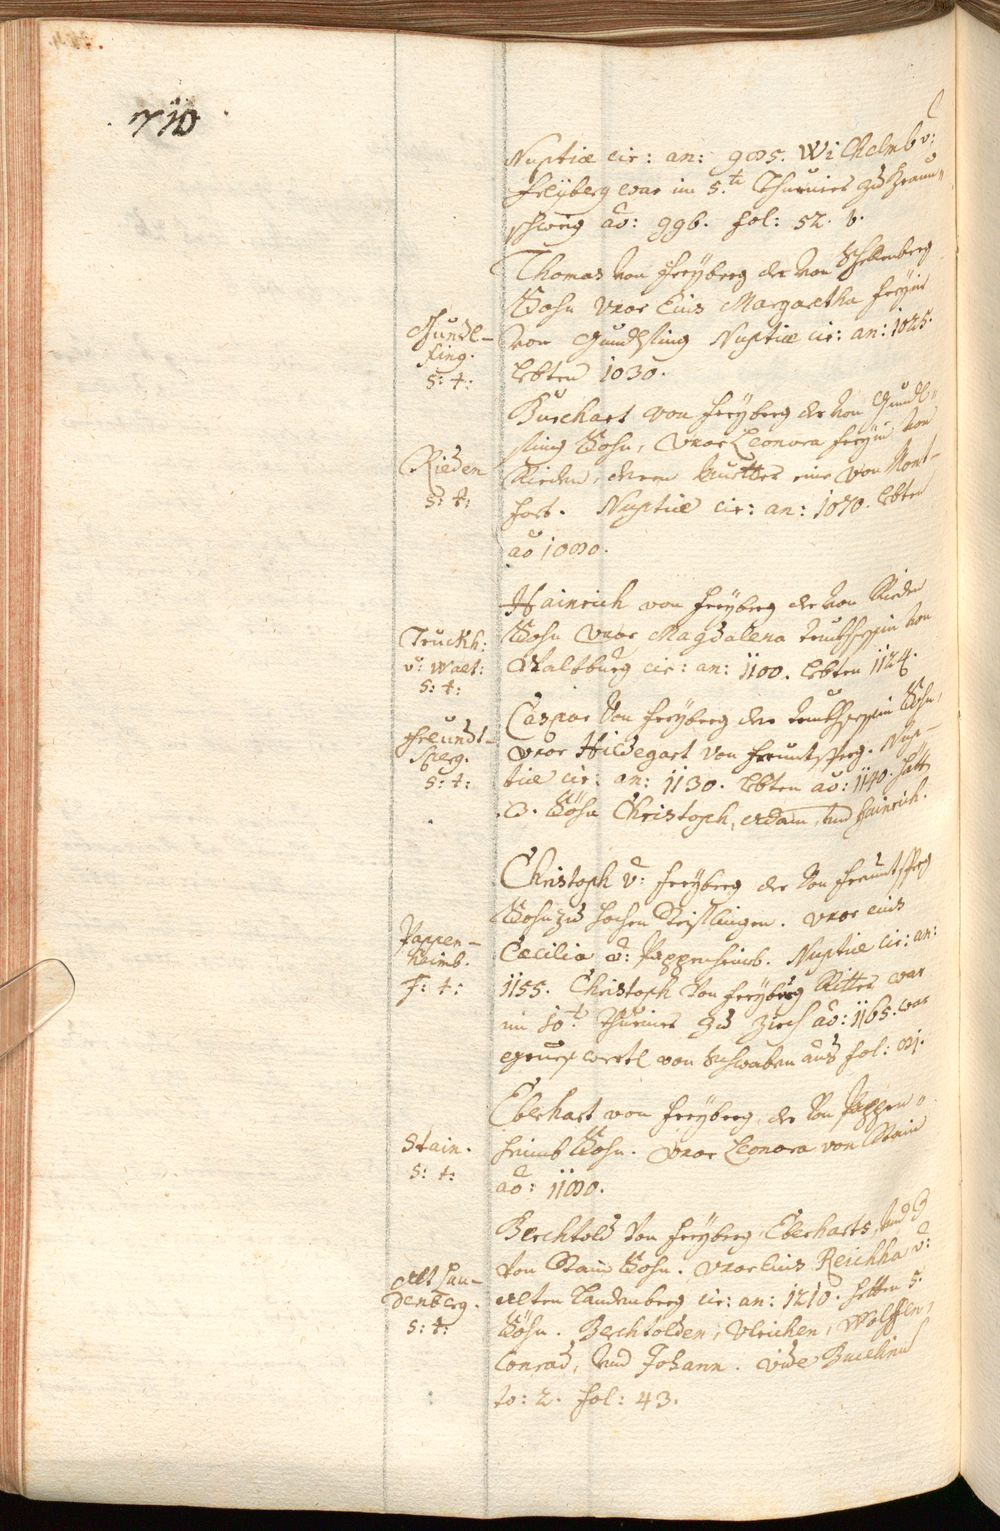 710
Nuptiæ cir: an: 985. Wilhelmb v:
Freÿberg war im 5.te Thurnier zu Braun=
schweig aõ: 996. fol: 52. b.
Thomas von Freÿberg der von Schellenberg
Sohn Vxor Eius Margaretha Freÿin
von Gundlfing Nuptiæ cir: an: 1025.
lebten 1030.
Gundl-
fing.
s: t:
Burchart von Freÿberg der von Gundl=
fing Sohn, Vxor Leonora Freÿin von
Rieden, deren Muetter eine von Mont-
fort. Nuptiæ cir: an: 1070. lebten
aõ 1080.
Rieden
s: t:
Hainrich von Freÿberg der von Rieden
Sohn Vxor Magdalena Truchsessin von
Waltburg cir: an: 1100. lebten 1124.
Truckh:
v: Walt:
s: t:
Caspar von Freÿberg der Truchsessin Sohn,
Vxor Hildegart von Freuntsperg. Nup-
tiæ cir: an: 1130. lebten aõ: 1140. hatt
3. Söhn Christoph, Adam, und Hainrich.
Freundt-
sperg.
s: t:
Christoph v: Freÿberg der von Freuntsperg
Sohn zu hochen Eisslingen. Vxor eius
Cæcilia v: Pappenheimb. Nuptiæ cir: an:
1155. Christoph von Freÿberg Ritter war
im 10.t Thurnier zu Zirch aõ: 1165. war
von Schwaben aus fol: 81.
Pappen-
heimb.
f: t:
Eberhart von Freÿberg, der von Pappen=
heimb Sohn. Vxor Leonora von Stain
aõ: 1180.
Stain.
s: t:
Berchtold von Freÿberg Eberharts, und d
von Stain Sohn. Vxor Eius Reichha v:
Alten Landenberg cir: an: 1210. hetten 5.
Söhn. Berchtolden, Vlrichen, Wolffen,
Conrad, und Johann. vide Bucelinũ
to: 2. fol: 43.
Alt Lan-
denberg.
s: t: